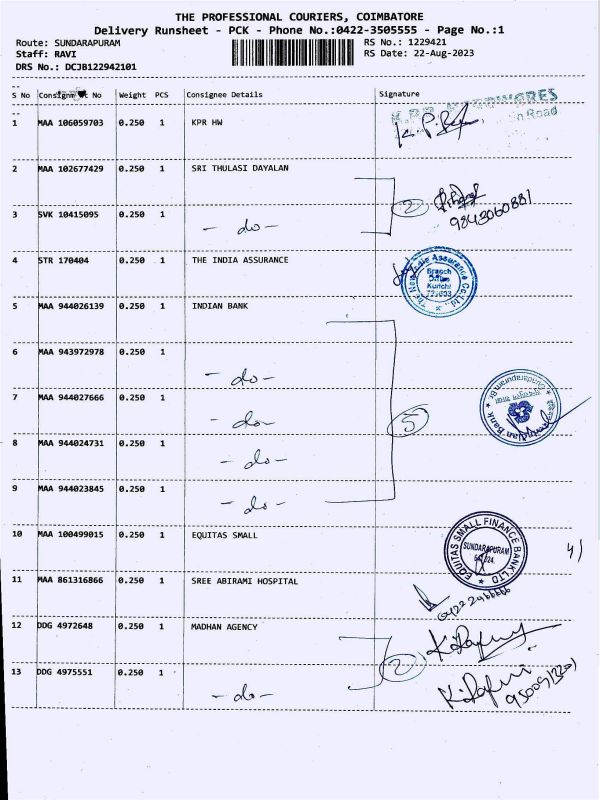 THE PROFESSIONAL COURIERS, COIMBATORE
Delivery Runsheet - PCK - Phone No.:0422-3505555 - Page No.:1
Route: SUNDARAPURAM RS No.: 1229421
Staff: RAVI RS Date: 22-Aug-2023
DRS No.: DCJB122942101
S No Consignment No Weight PCS Consignee Details Signature
1 MAA 106059703 0.250 1 KPR HW
K.P.R HARDWARES
n Road
2 MAA 102677429 0.250 1 SRI THULASI DAYALAN
3 SVK 10415095 0.250 1 - do - 2 9843060881
4 STR 170404 0.250 1 THE INDIA ASSURANCE
The New India Assurance Co. Ltd.
Branch
Office
Kurichi
5 MAA 944026139 0.250 1 INDIAN BANK
6 MAA 943972978 0.250 1 - do -
7 MAA 944027666 0.250 1 - do - 5
Indian Bank
Sundarapuram Br.
8 MAA 944024731 0.250 1 - do -
9 MAA 944023845 0.250 1 - do -
10 MAA 100499015 0.250 1 EQUITAS SMALL
EQUITAS SMALL FINANCE BANK LTD
SUNDARAPURAM
4)
11 MAA 861316866 0.250 1 SREE ABIRAMI HOSPITAL
04222466666
12 DDG 4972648 0.250 1 MADHAN AGENCY
13 DDG 4975551 0.250 1 - do - 2